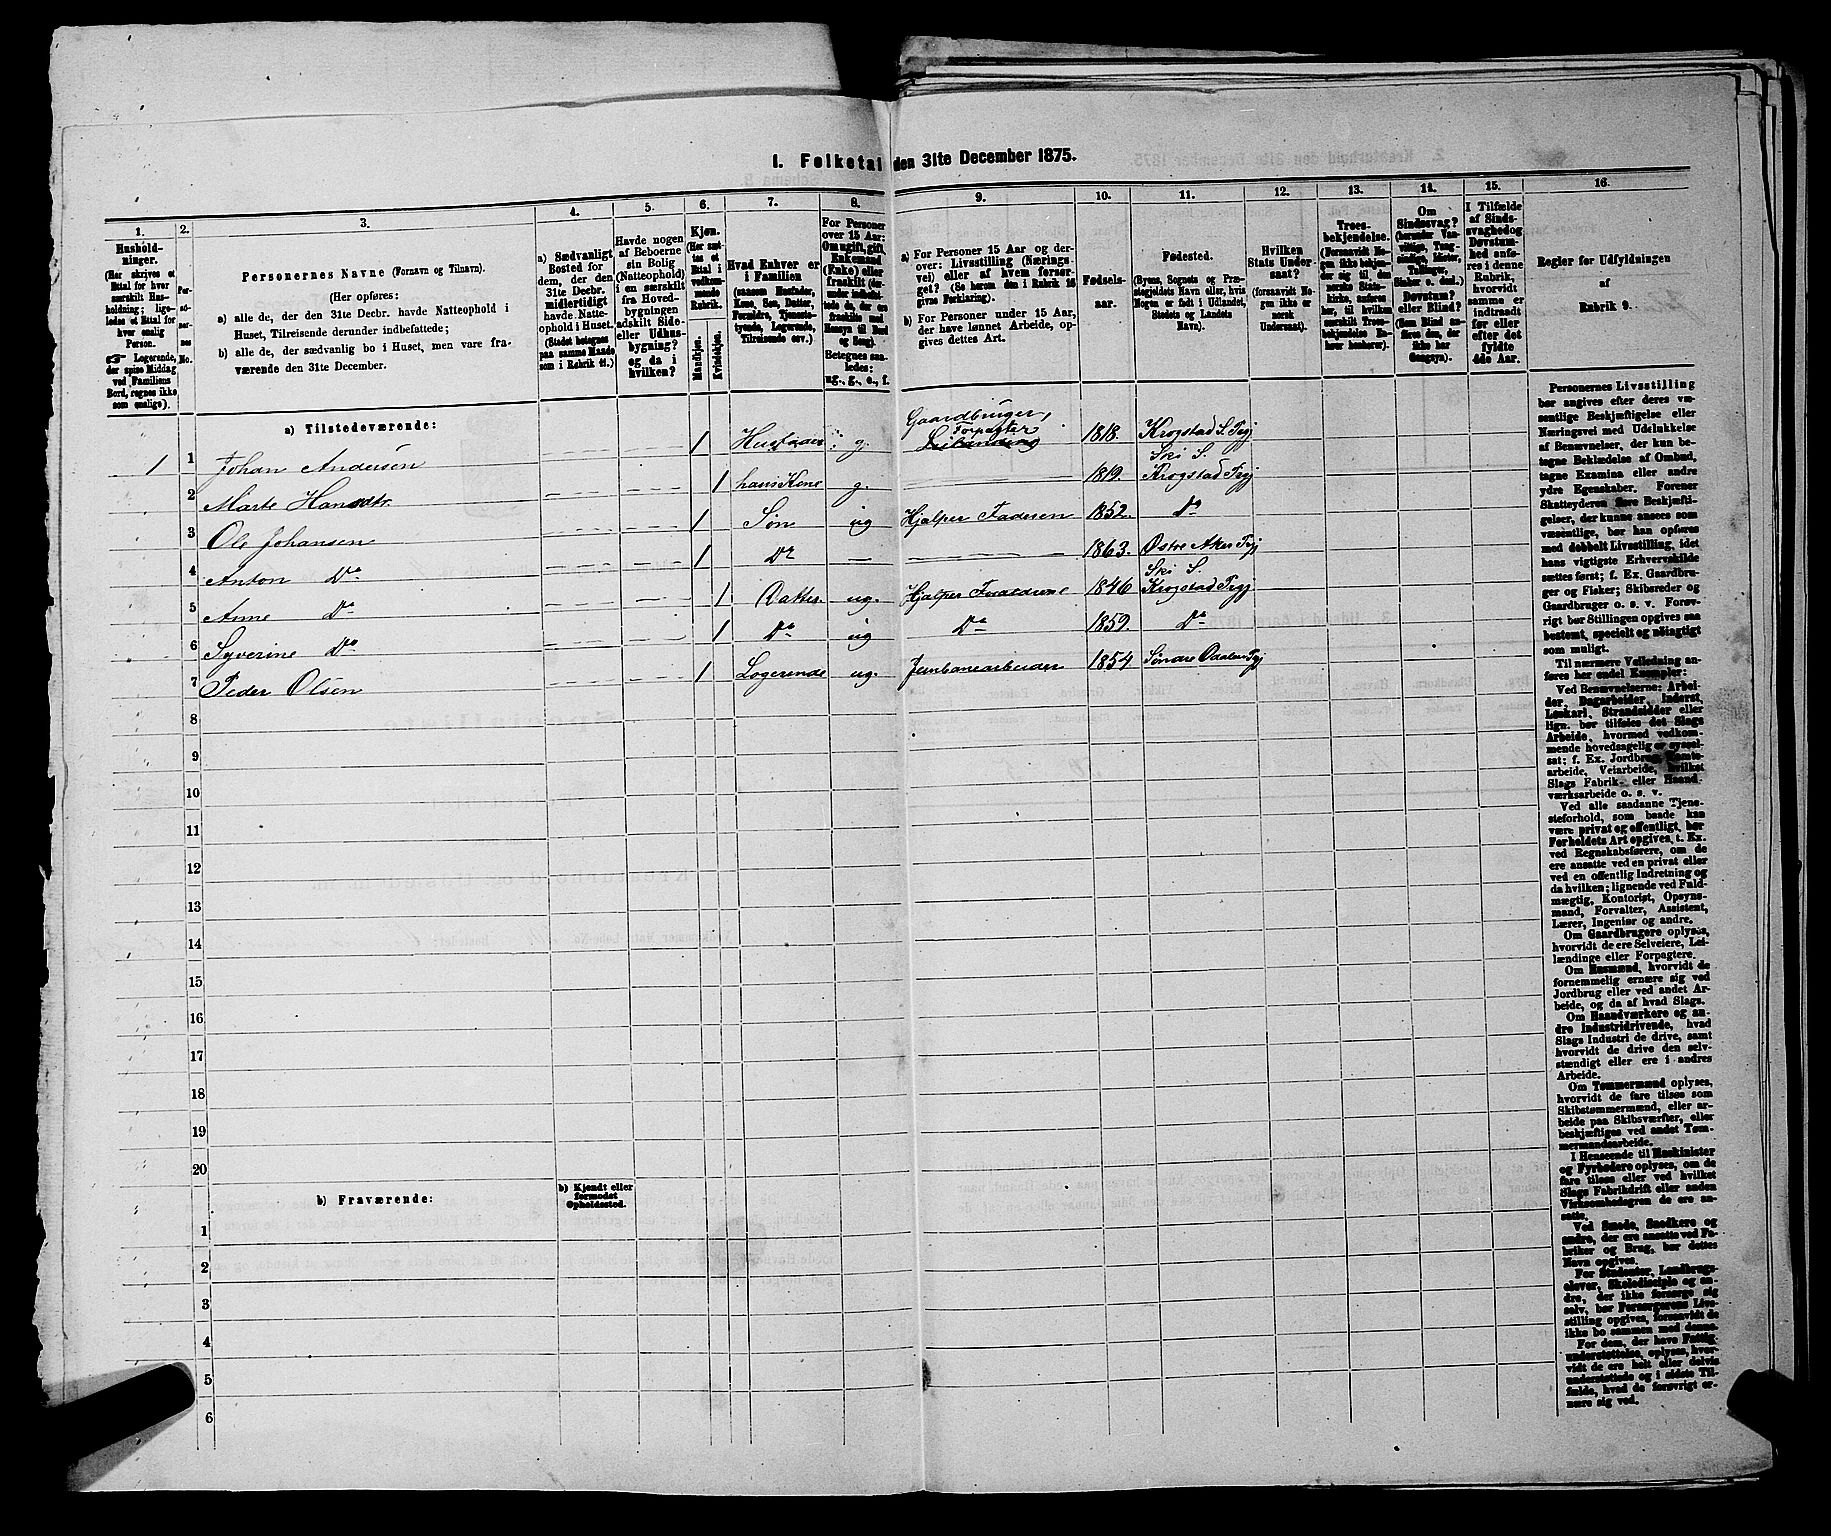 1. Folketal den 31te December 1875.
1. 2. 3. 4. 5. 6. 7. 8. 9. 10. 11. 12. 13. 14. 15. 16.
Husholdninger.
(Her skrives et Ettal for hver særskilt Husholdning; ligeledes et Ettal for hver enslig Person.
☞ Logerende, der spise Middag ved Familiens Bord, regnes ikke som enslige).
Personernes No.
Personernes Navne (Fornavn og Tilnavn).
(Her opføres:
a) alle de, der den 31te Decbr. havde Natteophold i Huset, Tilreisende derunder indbefattede;
b) alle de, der sædvanlig bo i Huset, men vare fraværende den 31te December.
a) Sædvanligt Bosted for dem, der den 31te Decbr. midlertidigt havde Natteophold i Huset. (Stedet betegnes paa samme Maade som i Rubrik 11.)
Havde nogen af Beboerne sin Bolig (Natteophold) i en særskilt fra Hovedbygningen adskilt Side- eller Udhusbygning? og da i hvilken?
Kjøn. (Her sættes et Ettal i vedkommende Rubrik.
Mandkjøn. Kvindekjøn.
Hvad Enhver er i Familien
(saasom Husfader, Kone, Søn, Datter, Forældre, Tjenestetyende, Logerende, Tilreisende osv.)
For Personer over 15 Aar: Om ugift, gift, Enkemand (Enke) eller fraskilt
Betegnes saaledes: ug., g., e., f.
a) For Personer 15 Aar og derover: Livsstilling (Næringsvei) eller af hvem forsørget? (Se herom den i Rubrik 16 givne Forklaring).
b) For Personer under 15 Aar, der have lønnet Arbeide, opgives dettes Art.
Fødselsaar.
Fødested.
(Byens, Sognets og Præstegjeldets Navn eller, hvis Nogen er født i Udlandet, Stedets og Landets Navn).
Hvilken Stats Undersaat?
(forsaavidt Nogen ikke er norsk Undersaat).
Troesbekjendelse.
(Forsaavidt Nogen ikke bekjender sig til den norske Statskirke, anføres her, til hvilken særskilt Troesbekjendelse Enhver henhører).
Om Sindssvag? Døvstum? eller Blind?
I Tilfælde af Sindssvaghed og Døvstumhed anføres i denne Rubrik, hvorvidt samme er indtraadt før eller efter det fyldte 4de Aar.
Regler for Udfyldningen
af
Rubrik 9.
a) Tilstedeværende:
1 1 Johan Andersen 1 Husfader g. Gaardbruger, Forpagter 1818. Krogstad S. Prgj
2 Marte Hansdtr. 1 hans Kone g. 1819. Ski S. Krogstad Prgj
3 Ole Johansen 1 Søn ug Hjælper Faderen 1852. Do
4 Anton Do 1 Do 1863. Østre Aker Prgj
5 Anne Do 1 Datter ug. Hjælper Forældrene 1846 Ski S. Krogstad Prgj
6 Syverine Do 1 Do ug Do 1859. Do
7 Peder Olsen 1 Logerende ug. Jernbanearbeider 1854 Søndre Odalen Prgj
8
9
10
11
12
13
14
15
16
17
18
19
20
b) Fraværende:
b) Kjendt eller formodet Opholdssted.
1
2
3
4
5
6
Personernes Livsstilling
bør angives efter deres væsentlige
Beskjæftigelse eller
Næringsvei med Udelukkelse
af Benævnelser, der kun betegne
Beklædelse af Ombud,
tagne Examina eller andre
ydre Egenskaber. Forener
Skatteyderen flere Beskjæftigelser,
der kunne ansees som
væsentlige, bør han opføres
med dobbelt Livsstilling, idet
hans vigtigste Erhvervskilde
sættes først; f. Ex. Gaardbruger
og Fisker; Skibsreder og
Gaardbruger o. s. v. Forøvrigt
bør Stillingen opgives saa
bestemt, specielt og nøiagtigt
som muligt.
Til nærmere Veiledning anføres
her endel Exempler:
Ved Benævnelserne: Arbeider,
Dagarbeider, Inderst,
Løskarl, Strandsidder eller
lign. bør tilføies det Slags
Arbeide, hvormed vedkommende
hovedsagelig er sysselsat;
f. Ex. Jordbrug, Tomtearbeide,
Veiarbeide, hvilket
Slags Fabrik- eller Haandværksarbeide
o. s. v.
Ved alle saadanne Tjenesteforhold,
som baade kan
være privat og offentligt, bør
Forholdets Art opgives, t. Ex.
ved Regnskabsførere, om de
ere ansatte ved en privat eller
ved en offentlig Indretning og
da hvilken; lignende ved Fuldmægtig,
Kontorist, Opsynsmand,
Forvalter, Assistent,
Lærer, Ingeniør og andre.
Om Gaardbrugere oplyses,
hvorvidt de ere Selveiere, Leilændinge
eller Forpagtere.
Om Husmænd, hvorvidt de
fornemmelig ernære sig ved
Jordbrug eller ved andet Arbeide,
og da af hvad Slags.
Om Haandværkere og andre
Industridrivende, hvad
Slags Industri de drive, samt
hvorvidt de drive den selvstændigt
eller ere i andres
Arbeide.
Om Tømmermænd oplyses,
hvorvidt de fare tilsøs som
Skibstømmermænd, eller arbeide
paa Skibsværfter, eller
beskjæftiges ved andet Tømmermandsarbeide.
I Henseende til Maskinister
og Fyrbødere oplyses, om de
fare tilsøs eller ved hvilket
Slags Fabrikdrift eller anden
Virksomhedsgren de ere ansatte.
Ved Smede, Snedkere og
andre, der ere ansatte ved Fabriker
og Brug, bør dettes
Navn opgives.
For Studenter, Landbrugselever,
Skoledisciple og andre,
der ikke forsørge sig
selv, bør Forsørgerens Livsstilling
opgives, forsaavidt de
ikke bo sammen med denne.
For dem, der have Fattigunderstøttelse,
oplyses, hvorvidt
de ere helt eller delvis
understøttede og i sidste Tilfælde,
hvad de forøvrigt ernære
sig ved.